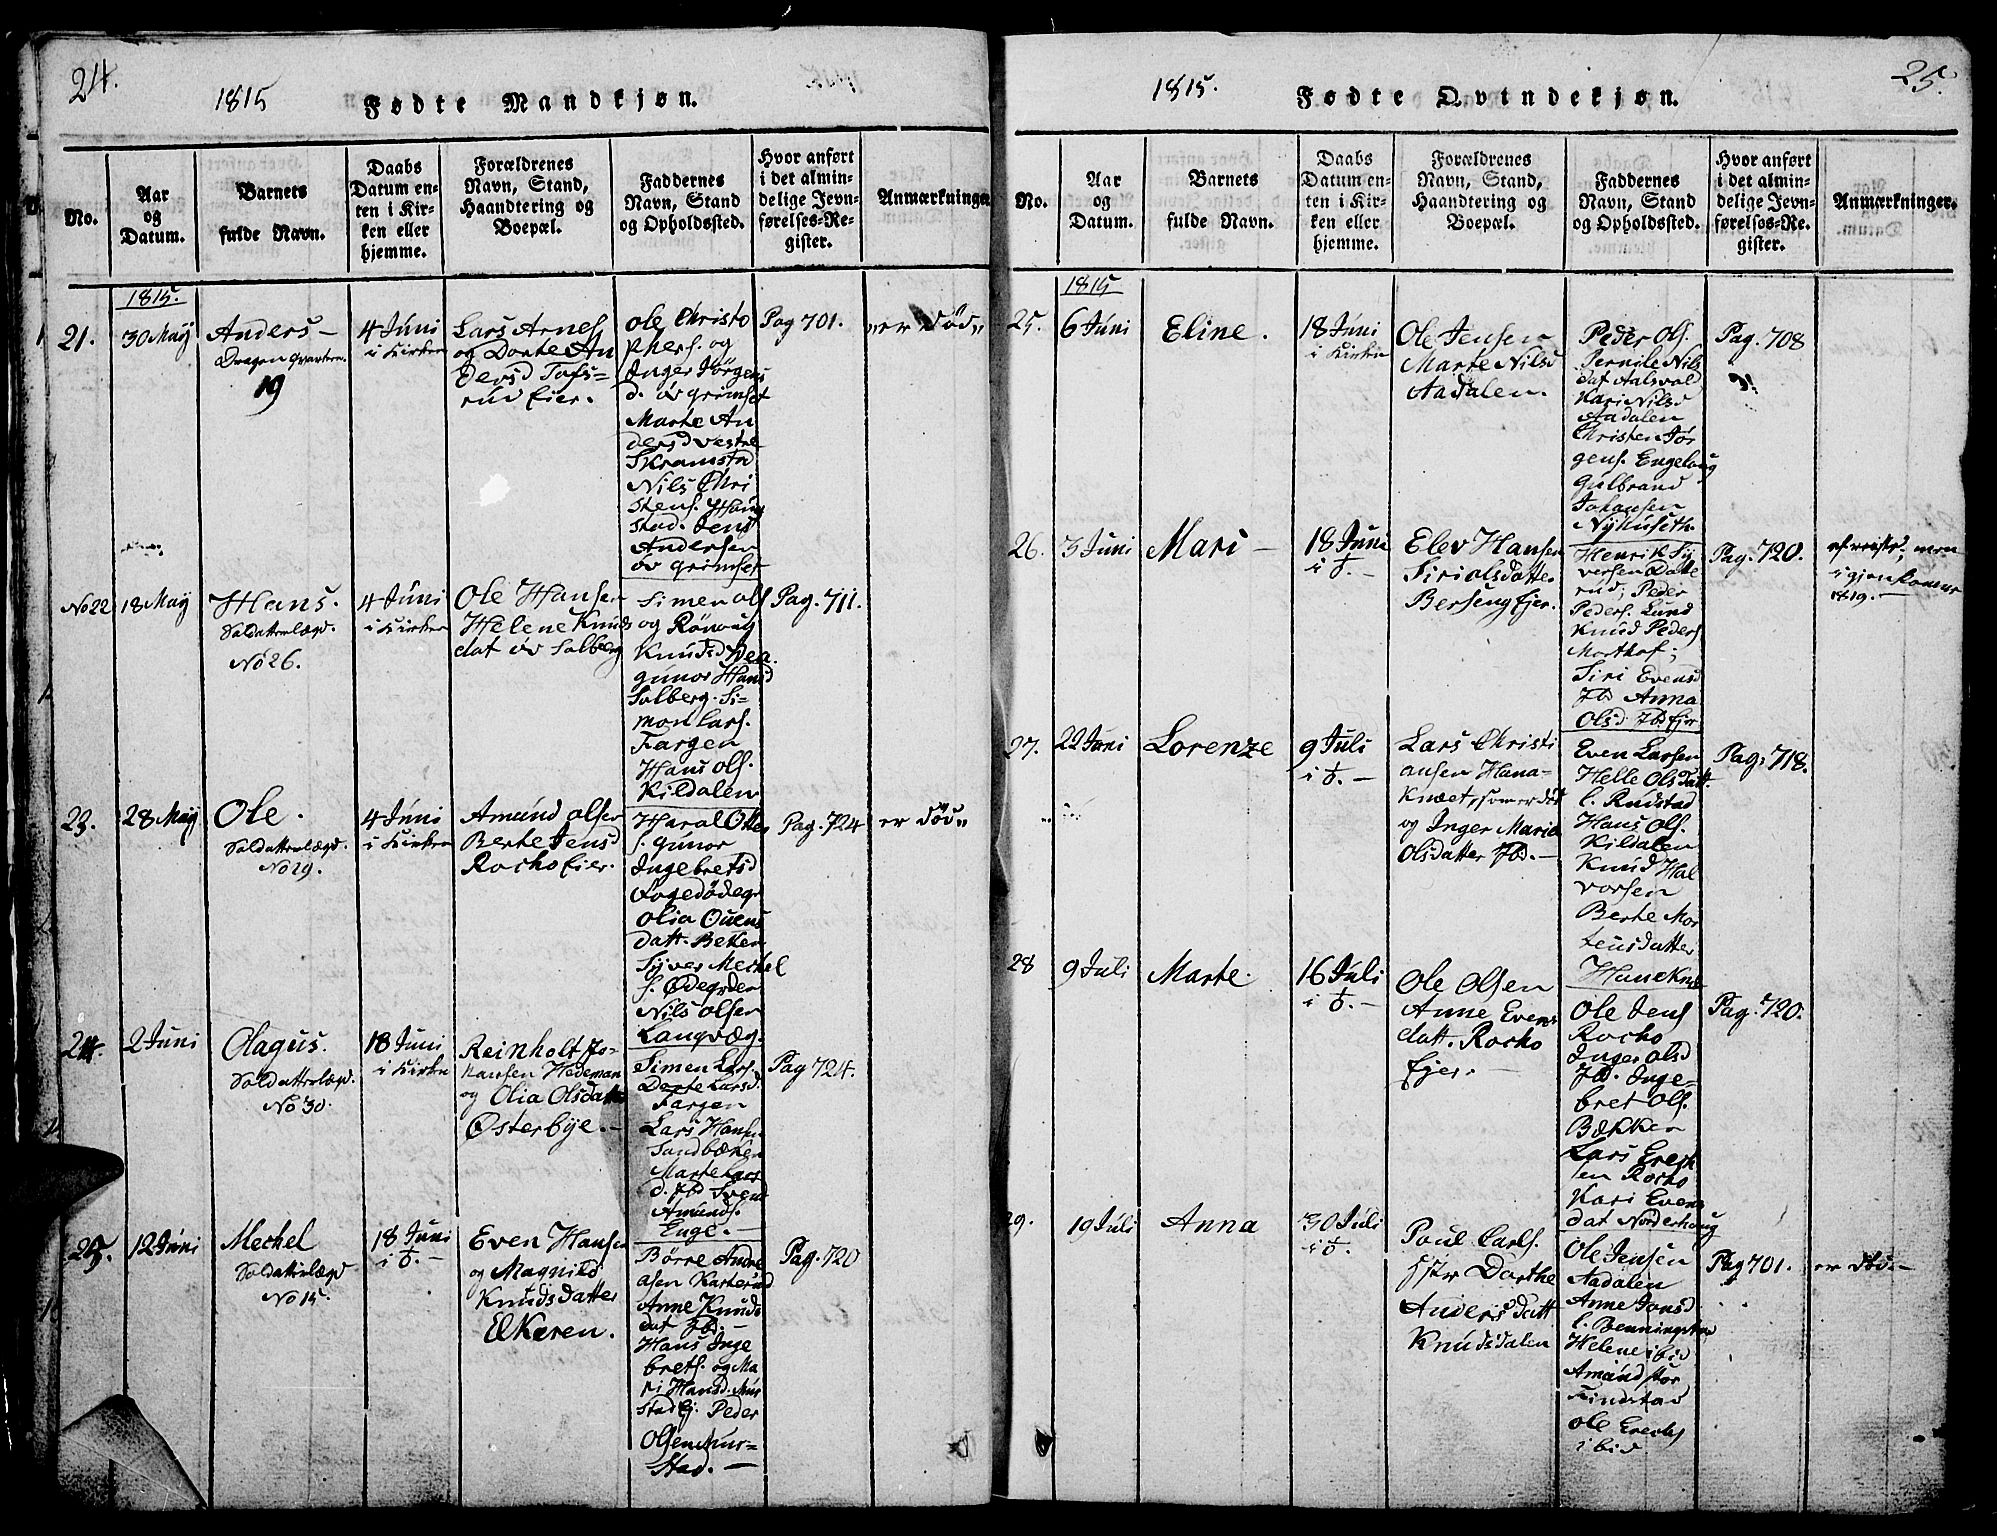 24.
1815
Fødte Mandkjøn.
No.
Aar
og
Datum.
Barnets
fulde Navn.
Daabs
Datum en-
ten i Kir-
ken eller
hjemme.
Forældrenes
Navn, Stand,
Haandtering og
Boepæl.
Faddernes
Navn, Stand
og Opholdssted.
Hvor anført
i det almin-
delige Jevn-
førelses-Re-
gister.
Anmærkninger
1815.
21.
30 May
Anders –
19
4 Juni
i Kirken
Lars Arnes
og Dorte An
dersd Tofs-
rud Eier.
Ole Christo
phers. og
Inger Jørgens
d. øv grimset
Marte An
dersd vestre
Skramstad
Nils Chri
stens.
stad. Jens
Andersen
øv grimset
Pag 701.
"er død"
No 22
18 May
Hans.
Soldatterlægd.
No 26.
4 Juni
i Kirken
Ole Hansen
Helene Knuds
dat øv Solberg
Simen Ols
og Rønoug
Knudsd
gunor Hansd
Solberg. Si-
mon Lars.
Fargen
Hans Ols.
Kildalen
Pag. 711.
23.
28 May
Ole.
Soldatterlægd.
No 29.
4 Juni
i Kirken
Amund Olsen
Berte Jensd
Rocho Eier.
Haral Otte
s. gunor
Ingebretsd
Olia
datt. Beken
Syver Mechel
s. Ødegrden
Nils Olsen
Langvæg.
Pag. 724
er død"
24.
2 Juni
Olagus.
Soldatterlægd.
No 30.
18 Juni
i Kirken
Reinholt Jo-
hansen Hedeman
og Olia Olsdatte
Østerbye. –
Simen Lars.
Dorte Larsd.
Fargen
Lars Hansen
Sandbæken
Marte Lars
d. Ibd Svend
Amunds.
Enge. –
Pag 724.
25.
12 Juni
Mechel
Soldatterlægd
No 15.
18 Juni
i D. –
Even Hansen
og Magnild
Knudsdatter
Elkæren.
Børre Andre
asen Karterud
Anne Knuds
dat Ibd. –
Hans Inge
brets. og Ma
ri Hansd. Mur
stad Ej. Peder
Olsen Mur=
stad. –
Pag. 720
25.
1815.
Fødte Qvindekjøn.
No.
Aar
og
Datum.
Barnets
fulde Navn.
Daabs
Datum en-
ten i Kir-
ken eller
hjemme.
Forældrenes
Navn, Stand,
Haandtering og
Boepæl.
Faddernes
Navn, Stand
og Opholdssted.
Hvor anført
i det almin-
delige Jevn-
førelses-Re-
gister.
Anmærkninger.
1815
25.
6 Juni
Eline.
18 Juni
i Kirken
Ole Jensen
Marte Nilsd
Aadalen.
Peder Ols.
Pernile Nils
dat Aalsvold
Kari Nilsd
Aadalen
Christen Jør
gens. Engeloug
Gulbrand
Johansen
Nyhuseth.
Pag. 708
26.
3 Juni
Mari –
18 Juni
i D. –
Elev Hansen
Siri Olsdatte.
Berseng Ejer.
Henrik Sy
versen Datte
rud; Peder
Peders. Lund
Knud Peders
Morthof;
Siri Evensd
Ibd Anna
Olsd. Ibd Ejer
Pag. 720.
igjen
1819. –
27.
22 Juni
Lorenze
9 Juli
i D. –
Lars Christi
ansen Hana-
Knæet, som er død
og Inger Maria
Olsdatter Ibd. –
Even Larsen
Helle Olsdatt.
l. Rudstad
Hans Ols.
Kildalen
Knud Hal
vorsen
Berte Mor
tensdatter
Haneknæ
Pag. 718.
28
9 Juli
Marte.
16 Juli
i D. –
Ole Olsen
Anne Evens
datt. Rocho
Ejer. –
Ole Jens
Rocho
Inger Olsd
Ibd. Inge-
bret Ols.
Bækken
Lars Erech
sen Rocho
Kari Evens
dat Norderhoug
Pag. 720.
29.
19 Juli
Anna
30 Juli
i D.
Poul Carls.
Dorthe
Andersdatt
Knudsdalen
Ole Jensen
Aadalen
Anne Jonsd
l. Benningstad
Helene ibid
Amund stor
Findstad
Ole Erechs
ibid
Pag 701.
er død –